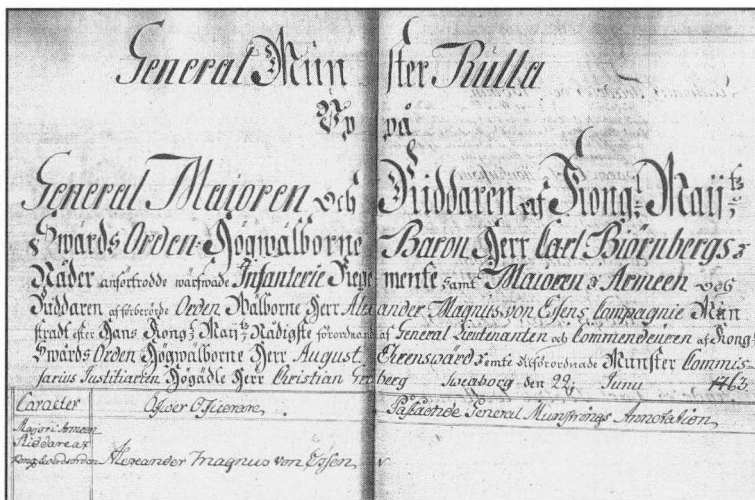 General Mün ster Rulla
Up på
General Maioren och Riddaren af Kong:l Maij:ts
Swärds Orden Högwälborne Baron Herr Carl Björnbergs
Nåder anförtrodde wärfwade Infanterie Regemente samt Maioren Armeen och
Riddaren af förberörde Orden Wälborne Herr Alexander Magnus von Essens Compagnie Mün
stradt efter Hans Kong:l Maij:ts Nådigste förordnand af General Lieutenanten och Commendeuren af Kong:l
Swärds Orden Högwälborne Herr August Ehrenswärd samt Munster Commis
sarius Justitiarien Högädle Herr Christian Sweaborg den 22 Junii 1763
Caracter Öfwer Officerare Påstående General Munstrings Annotation
Majori Armeen
Riddare af
Kong Swerdsorden Alexander Magnus von Essen